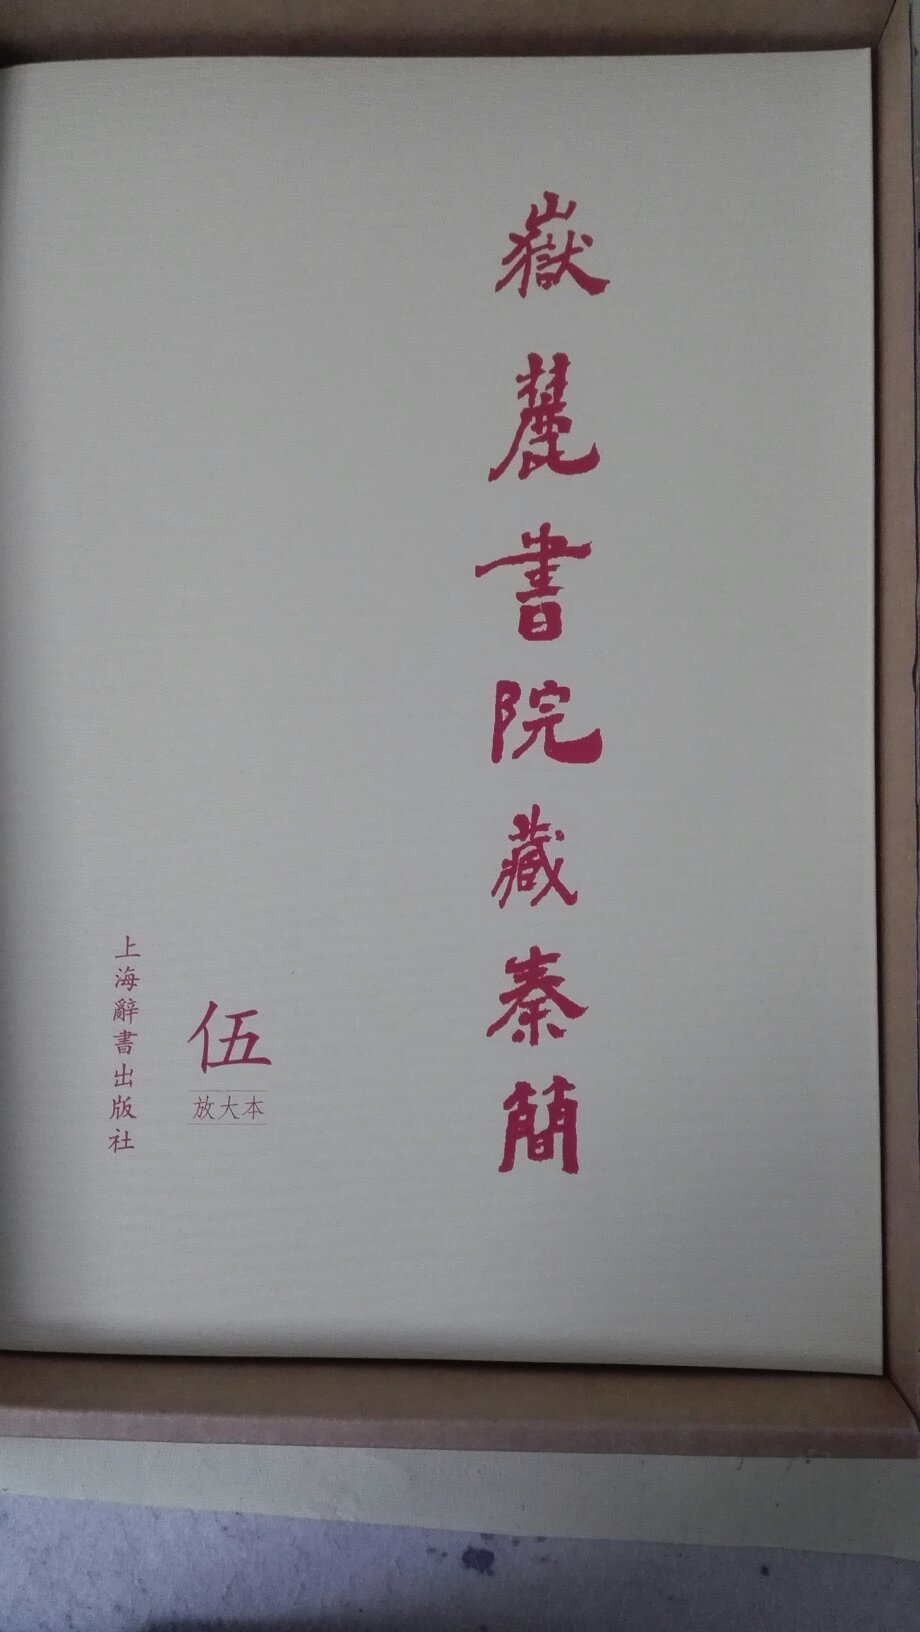 嶽麓書院藏秦簡
伍
放大本
上海辭書出版社